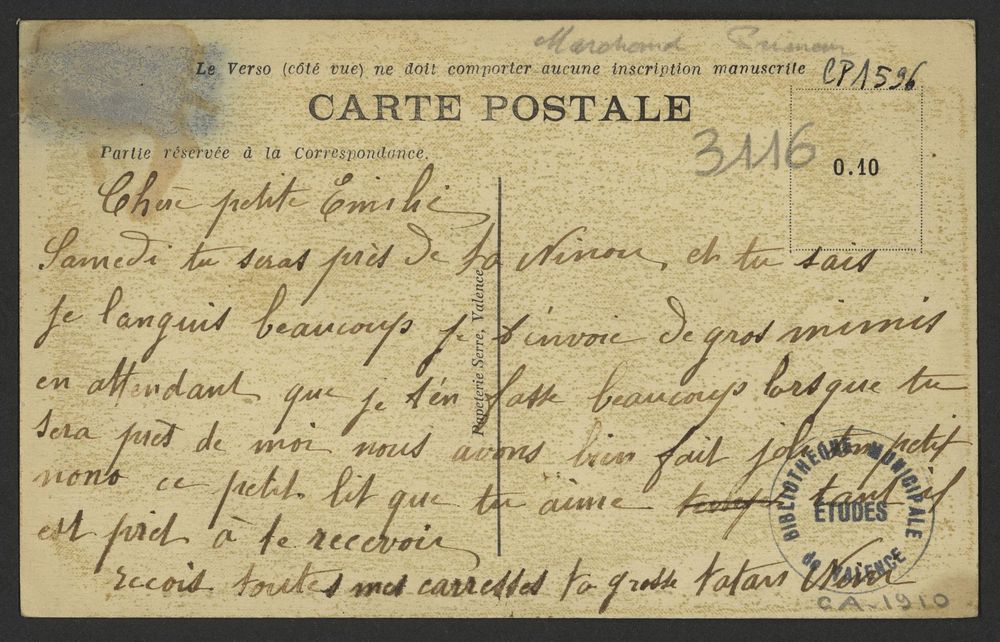 Marchand Primeur
Le Verso (côté vue) ne doit comporter aucune inscription manuscrite
CP1596
CARTE POSTALE
3116
0.10
Partie réservée à la Correspondance.
Chère petite Emilie
Samedi tu seras près de ta Ninou, et tu sais
je languis beaucoup je t'invoie de gros mimis
en attendant que je t'en fasse beaucoup lorsque tu
sera près de moi nous avons bien fait joli ton petit
nono ce petit lit que tu aime tant il
est prêt à te recevoir
recois toutes mes carresses ta grosse tatan
Papeterie Serre, Valence
BIBLIOTHEQUE MUNICIPALE
ETUDES
de VALENCE
CA-1910